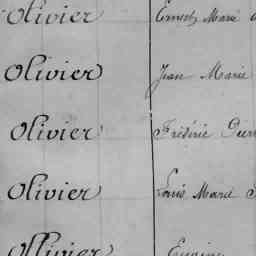 Olivier Ernest Marie
Olivier Jean Marie
Olivier Frédéric Pierre
Olivier Louis Marie
Olivier Eugène